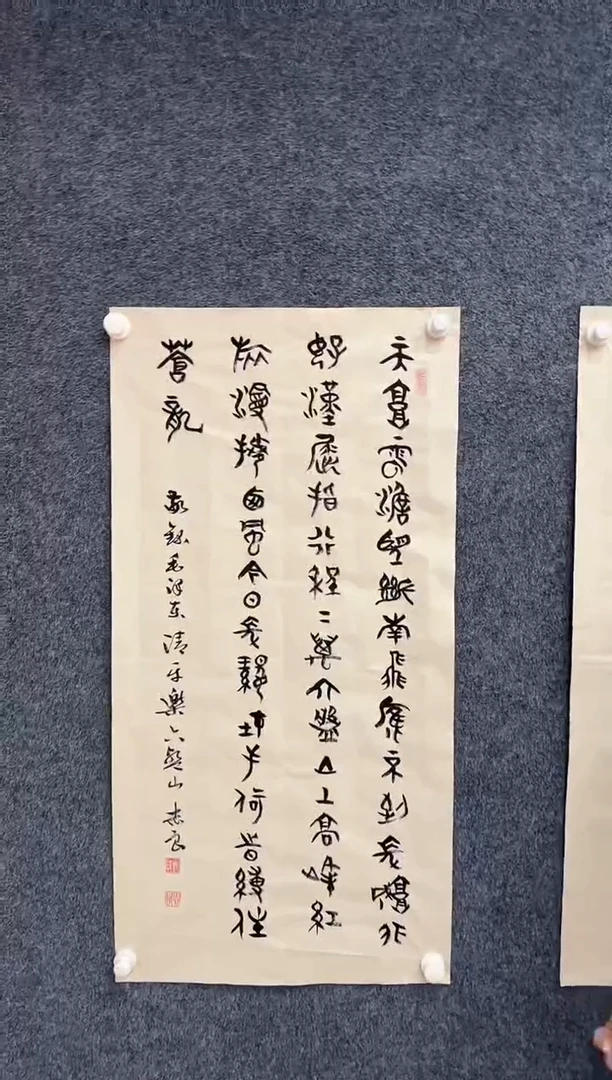 天高雲澹望斷南飛雁不到長城非
好漢屈指行程二萬六盤山上高峰紅
旗漫捲西風今日長纓在手何時縛住
蒼龍
敬錄毛泽东清平樂六盤山